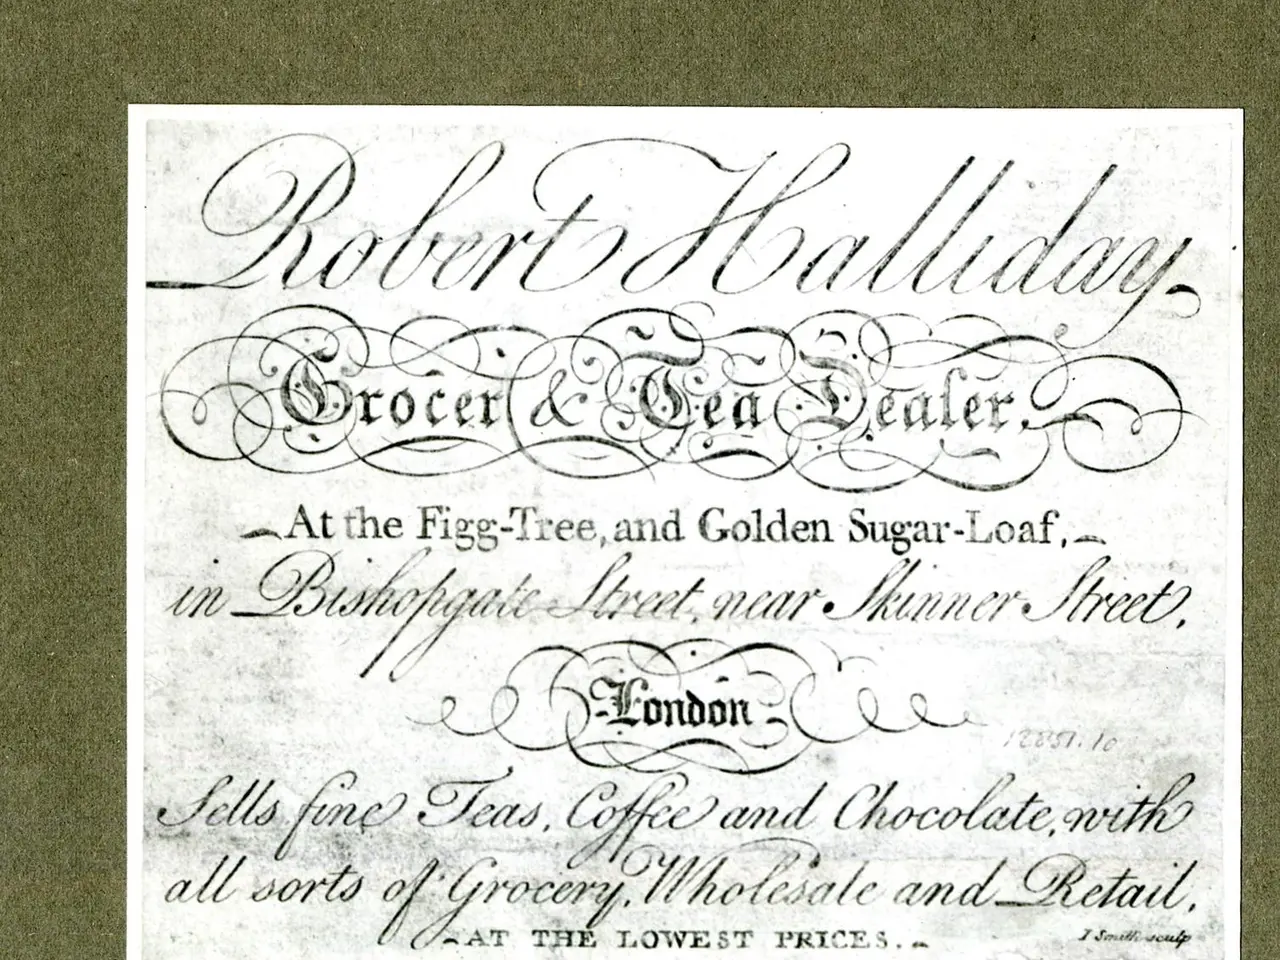 Robert Halliday
Grocer & Tea Dealer,
At the Figg-Tree, and Golden Sugar-Loaf,
in Bishopsgate Street, near Skinner Street,
London
Sells fine Teas, Coffee and Chocolate, with
all sorts of Grocery, Wholesale and Retail,
AT THE LOWEST PRICES.
I Smith sculp